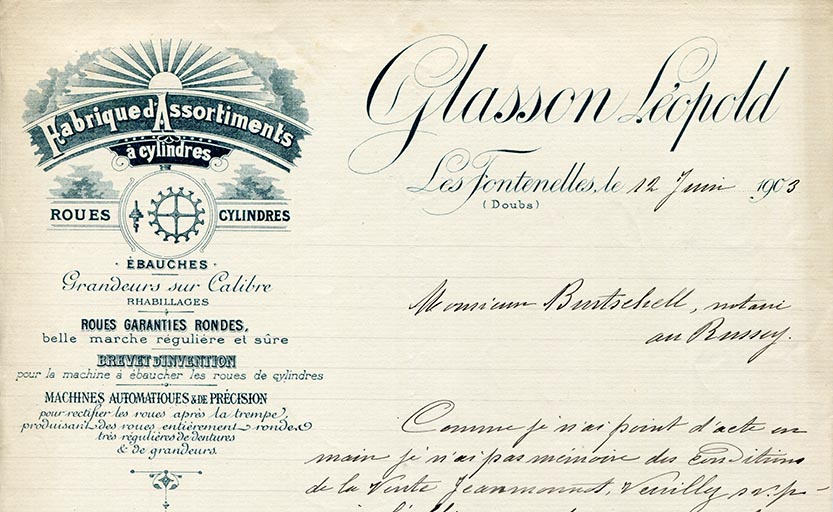 Fabrique d'Assortiments
à cylindres
ROUES CYLINDRES
ÉBAUCHES
Grandeurs sur Calibre
RHABILLAGES
ROUES GARANTIES RONDES,
belle marche régulière et sûre
BREVET D'INVENTION
pour la machine à ébaucher les roues de cylindres
MACHINES AUTOMATIQUES & DE PRÉCISION
pour rectifier les roues après la trempe,
produisant des roues entièrement rondes
très régulières de dentures
& de grandeurs.
Glasson Léopold
Les Fontenelles, le 12 Juin 1903
(Doubs)
Monsieur Burtschell, notaire
au Russey.
Comme je n'ai point d'acte en
main je n'ai pas mémoire des conditions
de la Vente Jeanmonnot, Veuillez s.v.p.